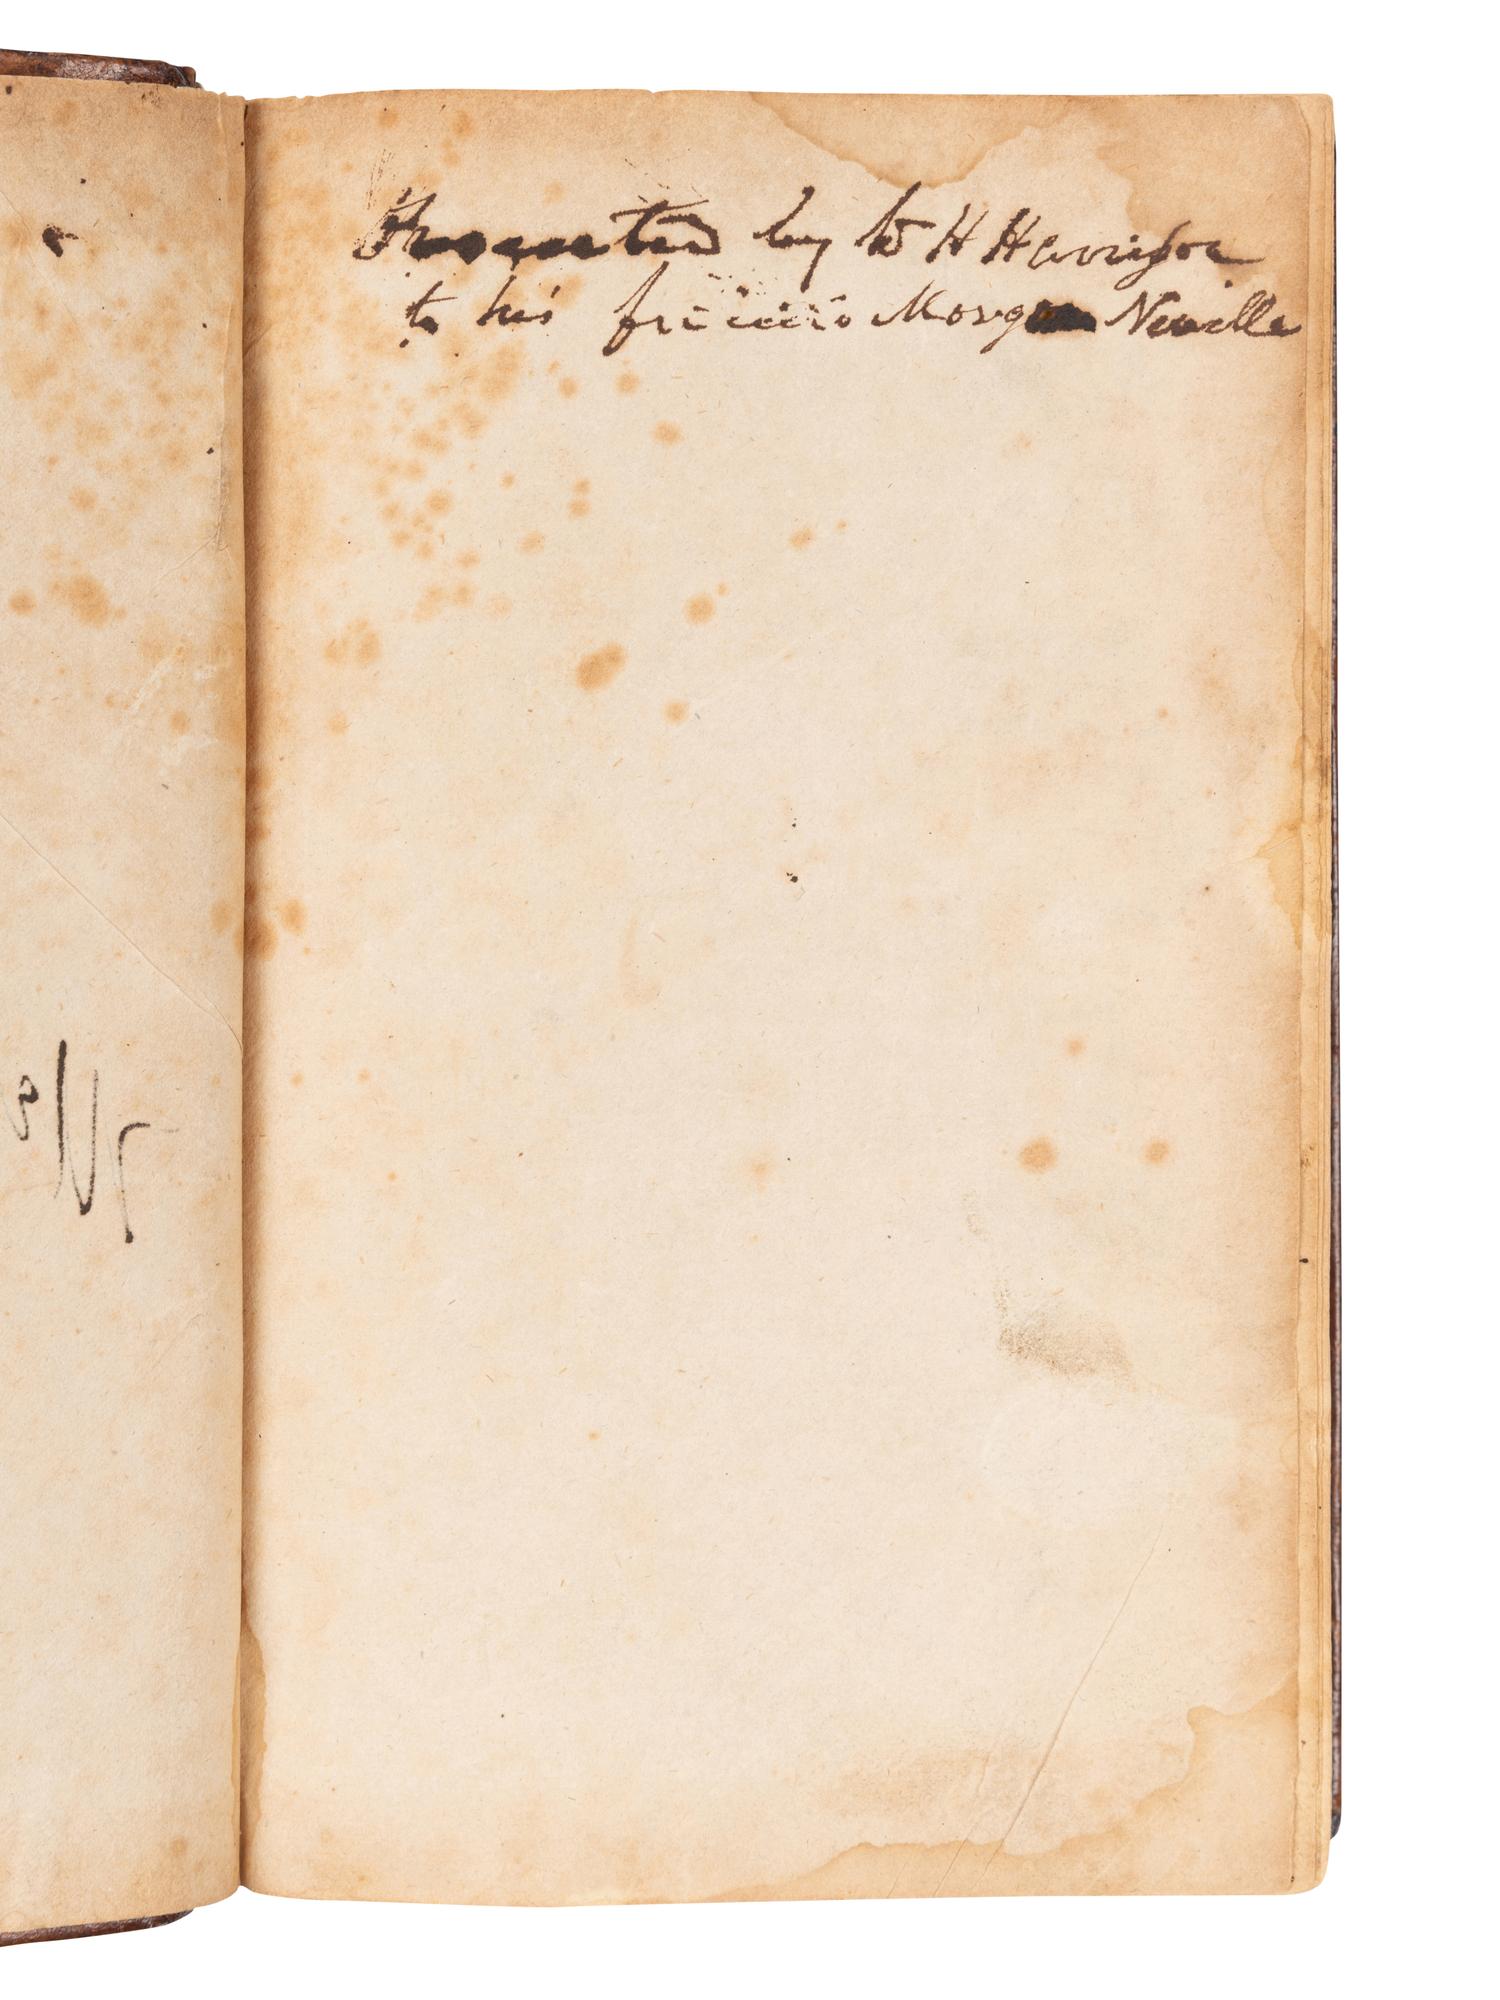 Presented by W H Harrison
to his friend Morgan Neville